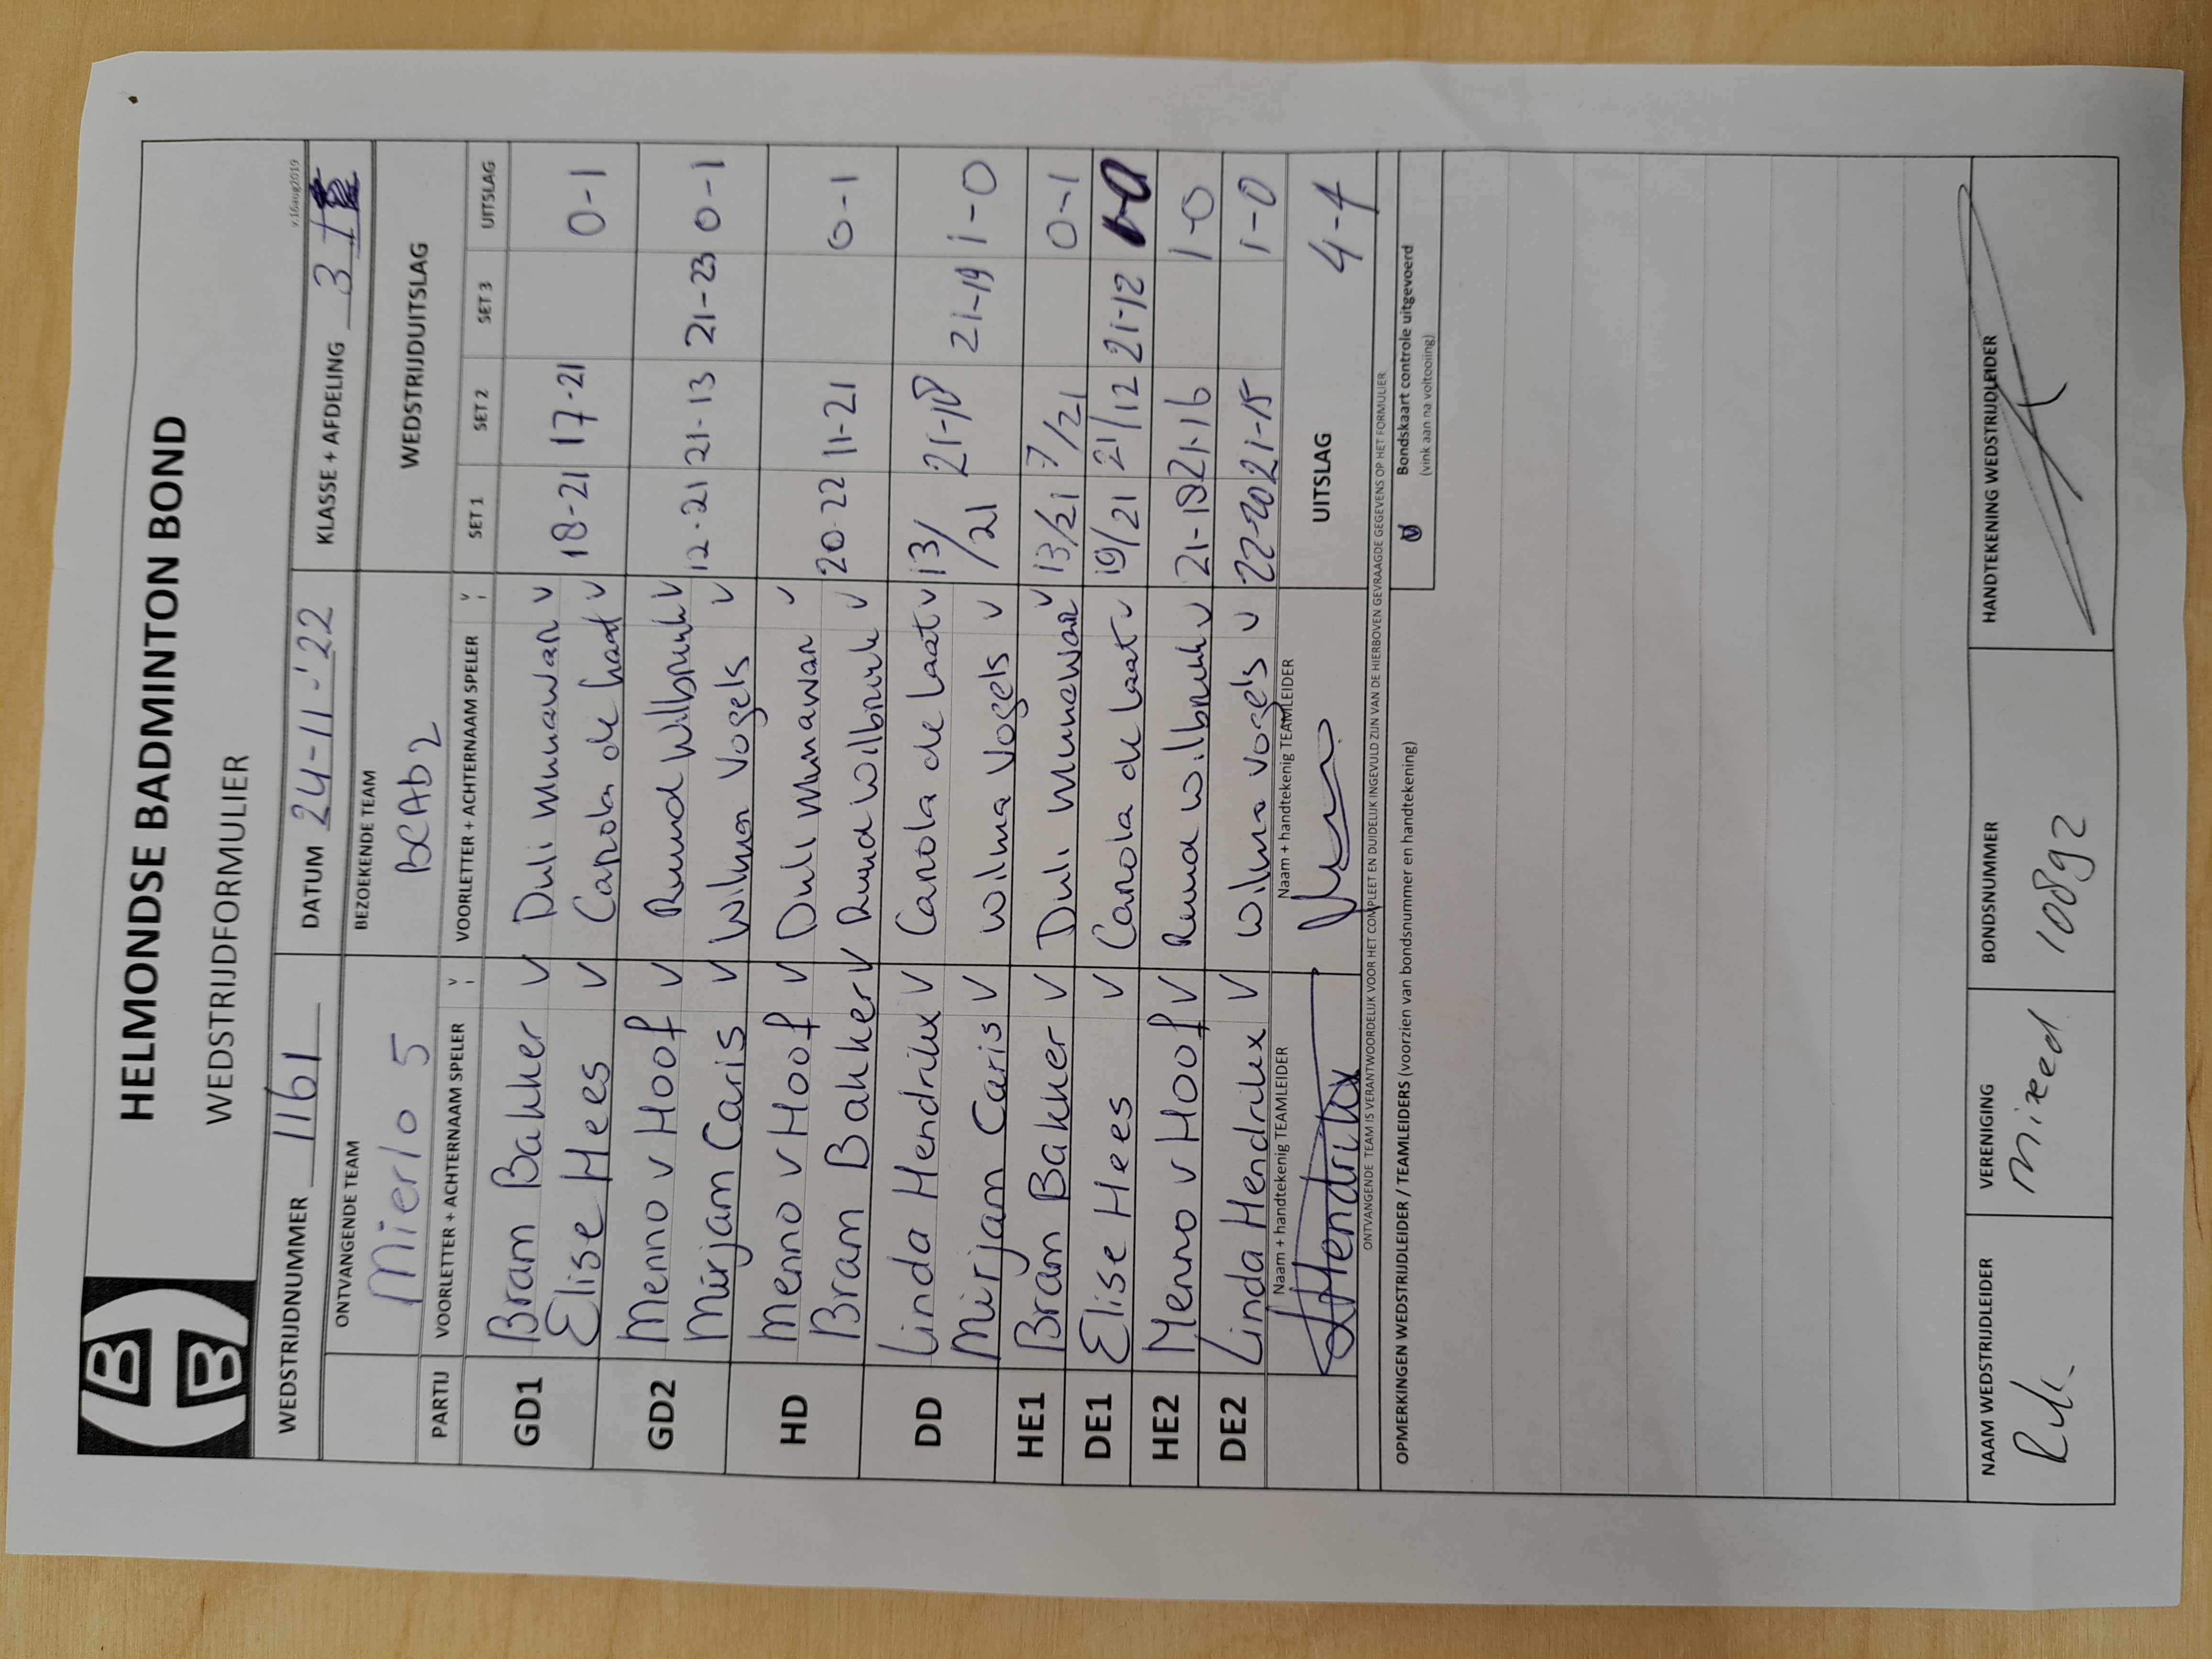 HELMONDSE BADMINTON BOND
WEDSTRIJDFORMULIER
v.16aug2019
WEDSTRIJDNUMMER 1161 DATUM 24-11-'22 KLASSE + AFDELING 3
ONTVANGENDE TEAM BEZOEKENDE TEAM WEDSTRIJDUITSLAG
Mierlo 5 BCAB2
PARTIJ VOORLETTER + ACHTERNAAM SPELER V VOORLETTER + ACHTERNAAM SPELER V SET 1 SET 2 SET 3 UITSLAG
GD1 Bram Bakker V Duli Munawan V
Elise Hees V Carola de Laat V 18-21 17-21 0-1
GD2 Menno v Hoof V Ruud Wilbrink V
Mirjam Caris V Wilma Vogels V 12-21 21-13 21-23 0-1
HD Menno v Hoof V Duli Munawan V
Bram Bakker V Ruud Wilbrink V 20-22 11-21 0-1
DD Linda Hendrikx V Carola de Laat V 13/
Mirjam Caris V Wilma Vogels V /21 21-18 21-19 1-0
HE1 Bram Bakker V Duli Munawan V 13/21 7/21 0-1
DE1 Elise Hees V Carola de Laat V 19/21 21/12 21-12 1-0
HE2 Menno v Hoof V Ruud Wilbrink V 21-19 21-16 1-0
DE2 Linda Hendrikx V Wilma Vogels V 22-20 21-15 1-0
Naam + handtekenig TEAMLEIDER Naam + handtekenig TEAMLEIDER UITSLAG 4-4
Hendrikx
ONTVANGENDE TEAM IS VERANTWOORDELIJK VOOR HET COMPLEET EN DUIDELIJK INGEVULD ZIJN VAN DE HIERBOVEN GEVRAAGDE GEGEVENS OP HET FORMULIER
OPMERKINGEN WEDSTRIJDLEIDER / TEAMLEIDERS (voorzien van bondsnummer en handtekening)
V Bondskaart controle uitgevoerd
(vink aan na voltooiing)
NAAM WEDSTRIJDLEIDER VERENIGING BONDSNUMMER HANDTEKENING WEDSTRIJDLEIDER
Mixed 10892